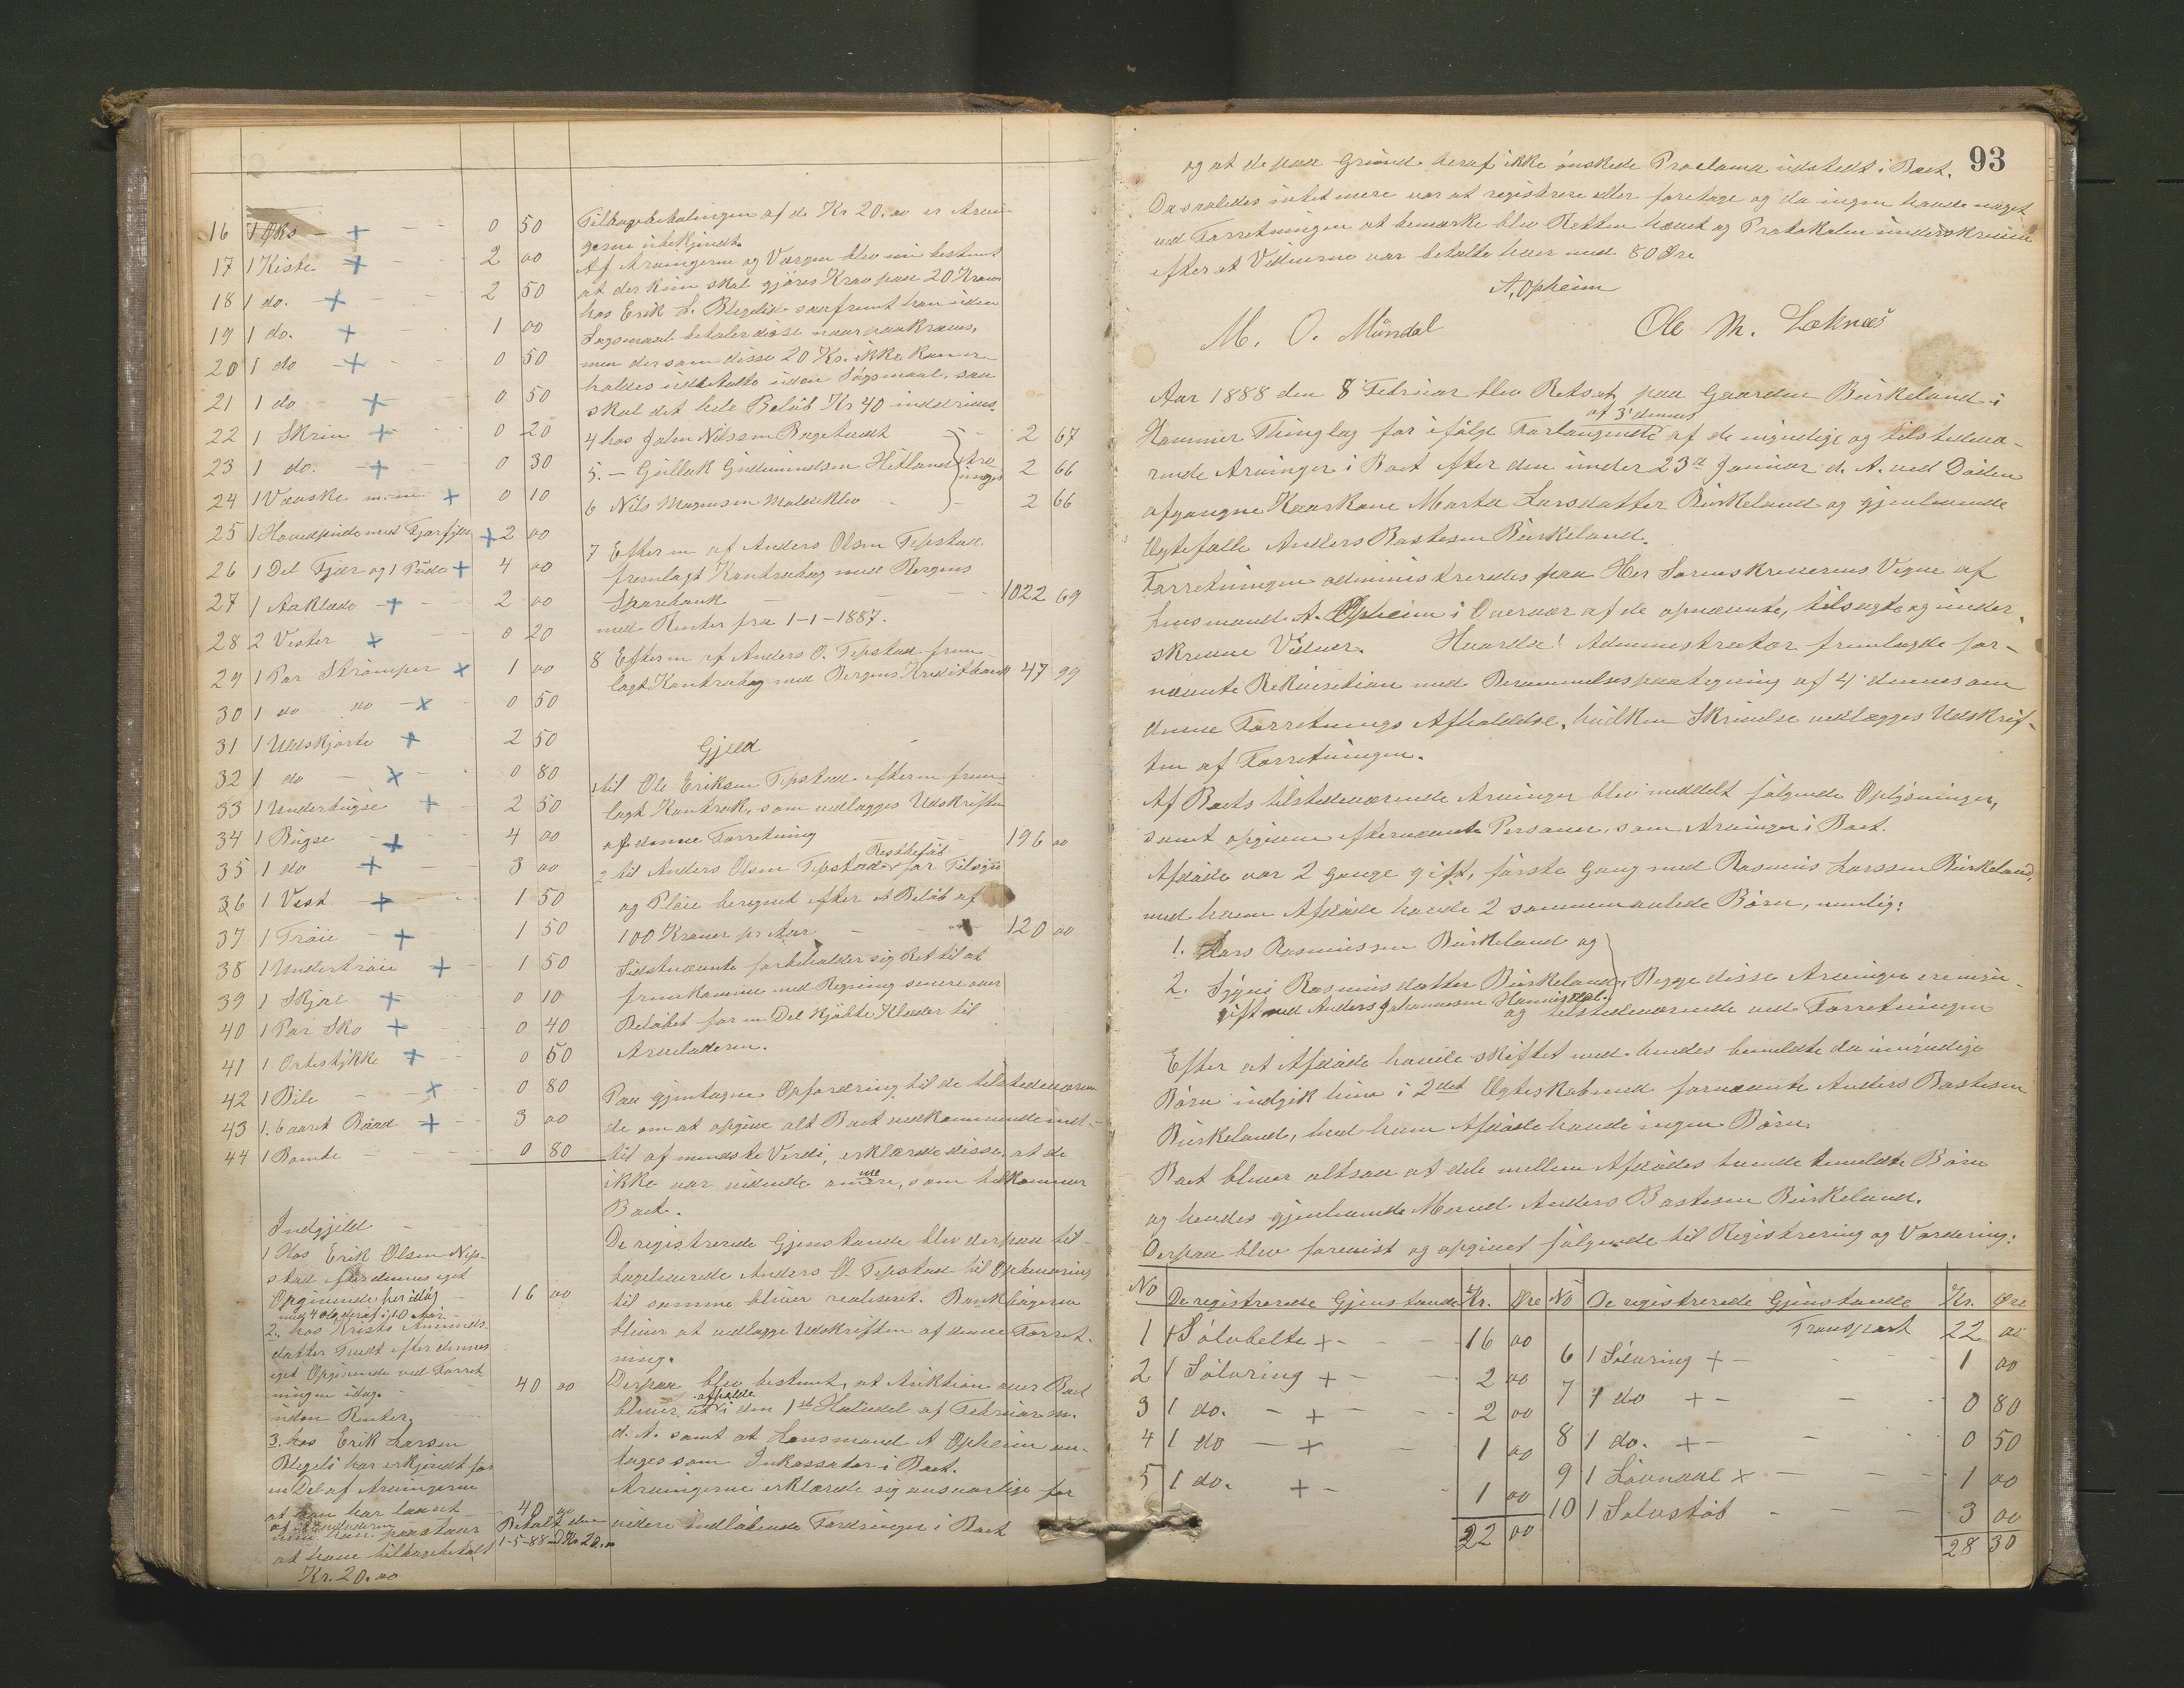 16 1 Øks + 0 50
17 1 Kiste + 2 00
18 1 do. + 2 50
19 1 do. + 1 00
20 1 do + 0 50
21 1 do + 0 50
22 1 Skrin + 0 20
23 1 do. + 0 30
24 1 Væske m.m. + 0 10
25 1 Hovedpude med Fjærfyld + 2 00
26 1 Del Fjær og 1 Pude + 4 00
27 1 Aaklæde + 2 00
28 2 Vester + 0 20
29 1 Par Strømper + 1 00
30 1 do do + 0 50
31 1 Uldskjorte + 2 50
32 1 do + 0 80
33 1 Underbugse + 2 50
34 1 Bugse + 4 00
35 1 do + 3 00
36 1 Vest + 1 50
37 1 Trøie + 1 50
38 1 Undertrøie + 1 50
39 1 Skjæl + 0 10
40 1 Par Sko + 0 40
41 1 Orbestykke + 0 50
42 1 Bile + 0 80
43 1. 6 aaret Baad + 3 00
44 1 Bomte 0 80
Indgjeld
1 Hos Erik Olsen Nip-
stad efter dennes eget
Opgivende per idag 16 00
2. hos Kristi Amunds-
datter Tvedt efter dennes
eget Opgivende ved Forret-
ningen idag. 40 00
uden Renter.
3. hos Erik Larsen
Blegeli har erkjendt for
en Del af Arvingerne
at han har laant 40 00
men han paastaar Betalt den
at have tilbagebetalt 1-5-88 med Kr 20.00
Kr. 20.00
Tilbagebetalingen af de Kr 20.00 er Arvin-
gerne ubekjendt.
Af Arvingerne og Værgen blev nu bestemt
at der kun skal gjøres Krav paa 20 Kroner
hos Erik L. Blegeli saafremt han uden
Søgsmaal betaler disse naar paakræves,
men dersom disse 20 Kr. ikke kan er-
holdes udbetalte uden Søgsmaal, saa
skal det hele Beløb Kr 40 inddrives.
4 hos John Nilssen Bogetvedt 2 67
5. — Gullak Gudmundsen Hetland Arvinger 2 66
6 Nils Magnesen Moldeklev 2 66
7 Efter en af Anders Olsen Tepstad
fremlagt Kontrabog med Bergens
Sparebank 1022 69
med Renter fra 1-1-1887.
8 Efter en af Anders O. Tepstad frem-
lagt Kontrabog med Bergens Kreditbank 47 99
Gjeld
1 til Ole Eriksen Tepstad efter en frem-
lagt Kontrakt, som vedlægges Udskriften
af denne Forretning 196 00
2 til Anders Olsen Tepstad Restbeløb for Tilsyn
og Pleie beregnet efter et Beløb af
100 Kroner pr Aar 120 00
Sidstnævnte forbeholder sig Ret til at
fremkomme med Regning senere over
Beløbet for en Del kjøbte Klæder til
Arveladeren.
Paa gjentagne Opfordring til de tilstedeværen-
de om at opgive alt Boet vedkommende ind-
til af mindste Verdi, erklærede disse, at de
ikke var vidende om mere, som tilkommer
Boet.
De registrerede Gjenstande blev derpaa til-
bagelevered Anders O. Tepstad til Opbevaring
til samme bliver realiseret. Bankbøgerne
bliver at vedlægge Udskriften af denne Forret-
ning.
Derpaa blev bestemt, at Auktion over Boet
bliver at afholde i den 1ste Halvdel af Februar m.
d. A. samt at Lensmand A Opheim an-
tages som Inkassator i Boet.
Arvingerne erklærede sig ansvarlige for
videre indløbende Fordringer i Boet
93
og at de paa Grund heraf ikke ønskede Proclama udstedt i Boet.
Da saaledes intet mere var at registrere eller foretage og da ingen havde noget
ved Forretningen at bemærke blev Retten hævet og Protokolen underskreven
efter at Vidnerne var betalte hver med 80 Øre
A. Opheim
M. O. Mundal Ole M. Loknæs
Aar 1888 den 8 Februar blev Retsat paa Gaarden Birkeland i
Hammer Thinglag for ifølge Forlangende af 3 dennes af de myndige og tilstedevæ-
rende Arvinger i Boet efter den under 23de Januar d. A. ved Døden
afgangne Kaarkone Marta Larsdatter Birkeland og gjenlevende
Ægtefælle Anders Bastesen Birkeland.
Forretningen administreredes paa Her Sorenskriverens Vegne af
Lensmand A. Opheim i Overvær af de opnævnte, tilsagte og under-
skrevne Vidner. Hvorda! Administrator fremlagde for-
nævnte Rekvisition med Berammelsespaategning af 4 dennes om
denne Forretnings Afholdelse, hvilken Skrivelse vedlægges Udskrif-
ten af Forretningen.
Af Boets tilstedeværende Arvinger blev meddelt følgende Oplysninger,
samt opgivne efternævnte Personer, som Arvinger i Boet.
Afdøde var 2 Gange gift, første Gang med Rasmus Larssen Birkeland,
med ham Afdøde havde 2 sammenavlede Børn, nemlig:
1. Lars Rasmussen Birkeland og
2. Synni Rasmusdatter Birkeland, Begge disse Arvinger ere myn-
gift med Anders Johannesen Hannisdal. og tilstedeværende ved Forretningen
Efter at Afdøde havde skiftet med hendes bemeldte da umyndige
Børn indgik hun i 2det Ægteskab med fornævnte Anders Bastesen
Birkeland, med ham Afdøde havde ingen Børn.
Boet bliver altsaa at dele mellem Afdødes tvende bemeldte Børn
og hendes gjenlevende Mand Anders Bastesen Birkeland.
Derpaa blev forevist og opgivet følgende til Registrering og Vurdering:
No De registrerede Gjenstande Kr. Øre No De registrerede Gjenstande Kr. Øre
1 1 Sølvbelte + 16 00 Transport 22 00
2 1 Sølvring + 2 00 6 1 Sølvring + 1 00
3 1 do. + 2 00 7 1 do + 0 80
4 1 do + 1 00 8 1 do. + 0 50
5 1 do. + 1 00 9 1 Livnaal + 1 00
22 00 10 1 Sølvstøb 3 00
28 30